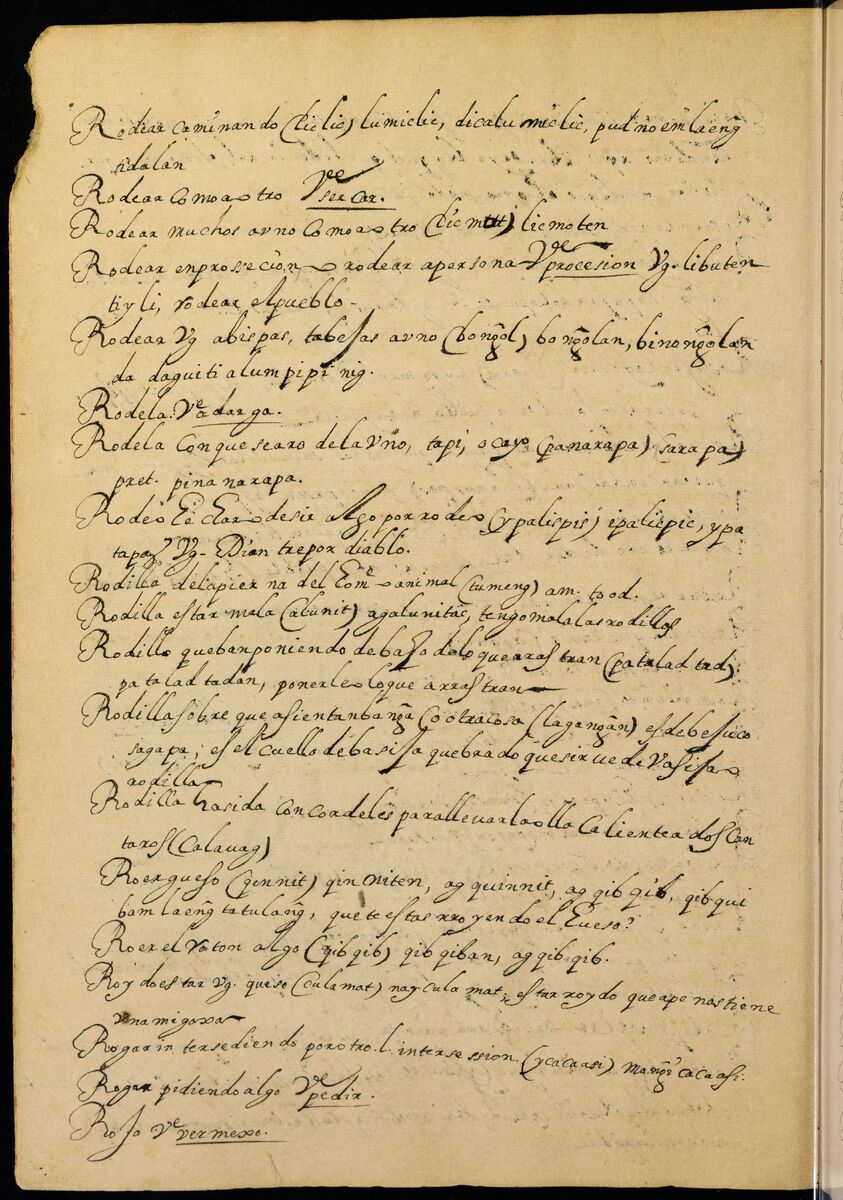 Rodear caminando (liclic) lumiclic, dicalu miclic, pud no em laeng̃
tidalan
Rodear como a otro Vᵉ sercar.
Rodear muchos a vno como a otro (licmut) licmoten
Rodear en prossecion, o rodear a persona Vᵉ procesion Vg. libuten
ti yli, rodear el pueblo.
Rodear Vg abispas, tabesas a vno (bong̃ol) bong̃olan, binong̃olan
da daguiti alumpipinig.
Rodela. Vᵉ adarga.
Rodela con que searo dela vno, tapi, o cayo (panarapa) sarapa)
pret. pinanarapa.
Rodeo Echar o desir algo por rodeo (ypalispis) ipaliepic, ypa
tapay Vg. Dian trepor diablo.
Rodilla dela pierna del Eomᵉ o animal (tumeng) am. tood.
Rodilla estar mala (alunit) agalunitac, tengo mala las rodillas
Rodillo que ban poniendo debaxo delo que arastran (patalad tad)
patalad tadan, ponerle o lo que arrastran
Rodilla sobre que asientan bang̃a o otra cosa (lagang̃an) es de besuco
sagapa, es el cuello de basissa quebrado que sirue de Vasissa o
rodilla
Rodilla hasida con cordeles para llevar la olla caliente a dos can
taros (calauag)
Roer gueso (qennit) qinniten, ag quinnit, ag qib qib, qib qui
bam laeng̃ ta tulang̃, que te estas rroyendo el Eueso?
Roer el raton algo (qib qib) qib qiban, ag qib qib.
Roydo estar Vg. queso (culamat) nay culamat, estar roydo que apenas tiene
vna migaxa
Rogar intersediendo por otro. l. intersession. (ycacaasi) mang̃i cacaasi.
Rogar pidiendo algo Vᵉ pedir.
Roxo Vᵉ vermexo.